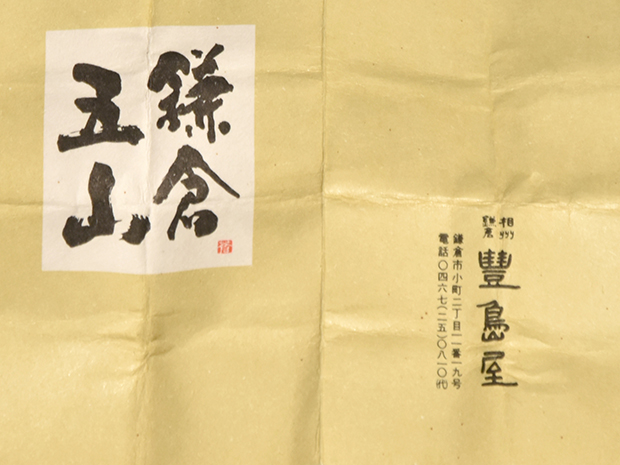 鎌倉
五山
相州
鎌倉
豊島屋
鎌倉市小町二丁目一一番一九号
電話〇四六七(二五)〇八一〇(代)